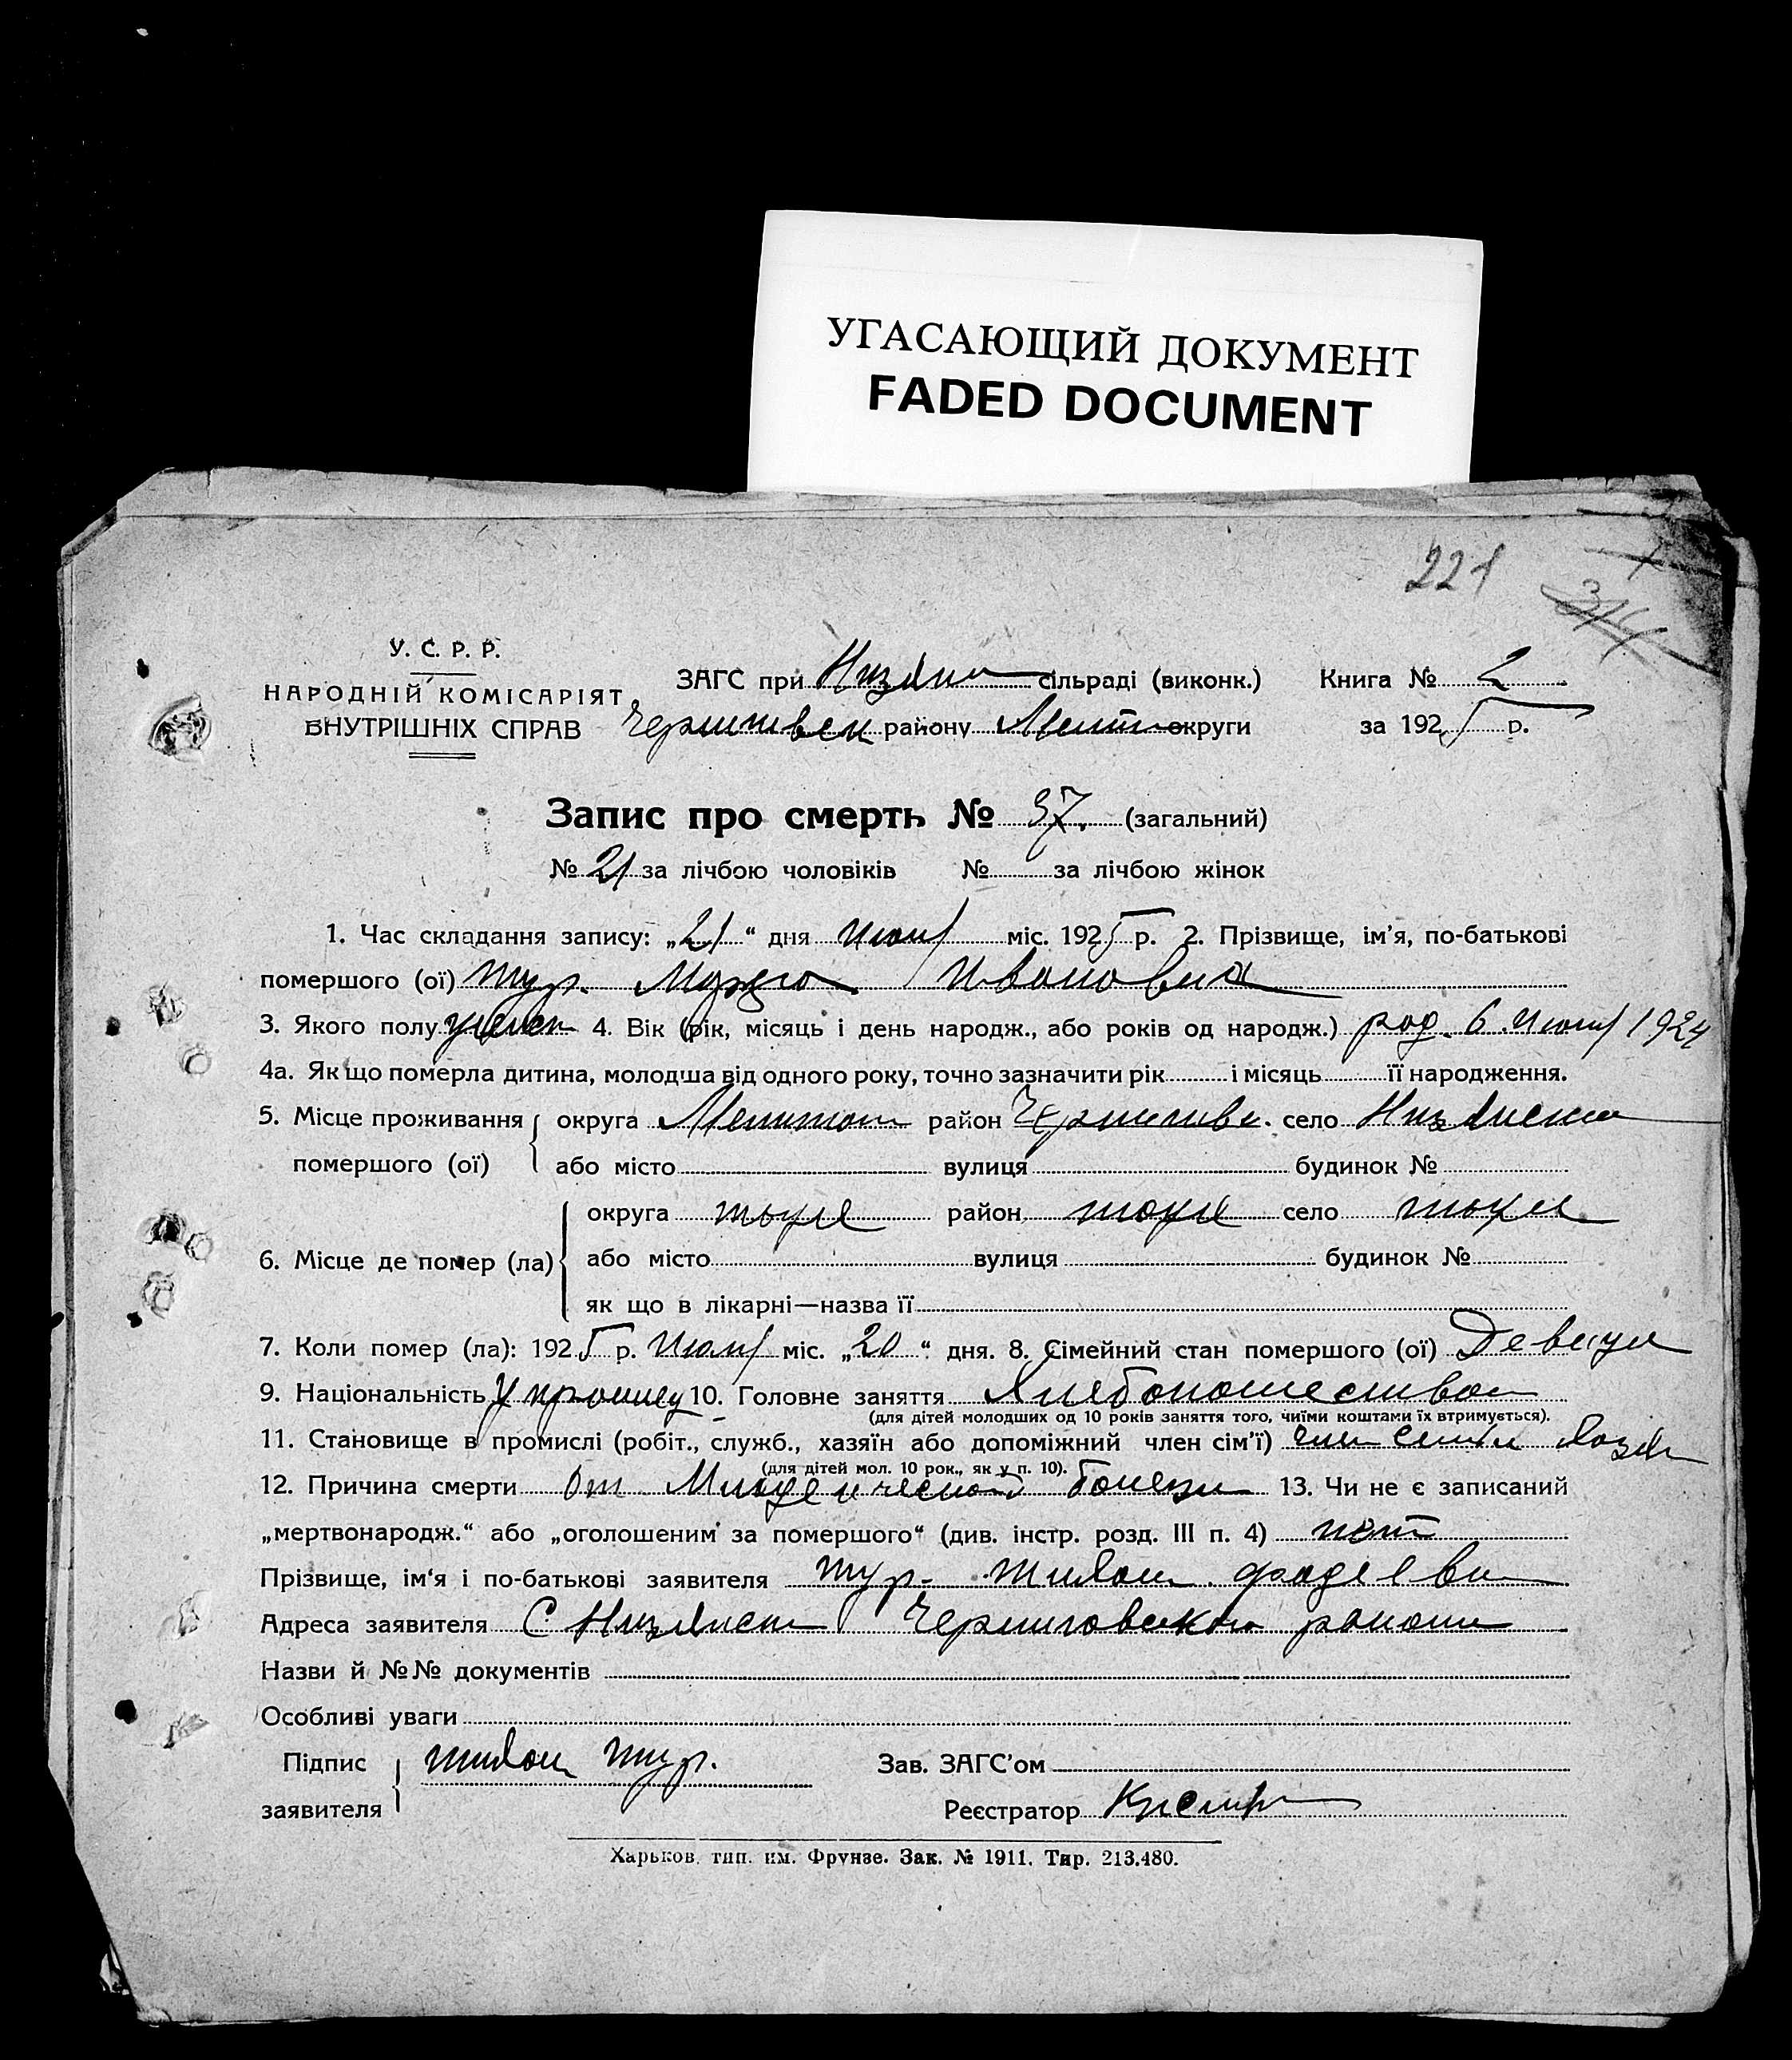 УГАСАЮЩИЙ ДОКУМЕНТ
FADED DOCUMENT
221
У. С. Р. Р.
НАРОДНІЙ КОМІСАРІЯТ
ВНУТРІШНІХ СПРАВ
ЗАГС при сільраді (виконк.) Книга № 2
району округи за 1925 р.
Запис про смерть № 37. (загальний)
№ 21 за лічбою чоловіків № за лічбою жінок
1. Час складання запису: „21“ дня Июля міс. 1925 р. 2. Прізвище, ім’я, по-батькові
помершого (ої) Тур. Ивановна
3. Якого полу 4. Вік (рік, місяць і день народж., або років од народж.) род. 6 Июля 1924
4а. Як що померла дитина, молодша від одного року, точно зазначити рік і місяць її народження.
5. Місце проживання округа район село
помершого (ої) або місто вулиця будинок №
округа тоже район тоже село тоже
6. Місце де помер (ла) або місто вулиця будинок №
як що в лікарні—назва її
7. Коли помер (ла): 1925 р. Июля міс. „20“ дня. 8. Сімейний стан помершого (ої) Девица
9. Національність 10. Головне заняття Хлебопашеством
(для дітей молодших од 10 років заняття того, чиїми коштами їх втримується).
11. Становище в промислі (робіт., служб., хазяїн або допоміжний член сім’ї) член семьи
(для дітей мол. 10 рок., як у п. 10).
12. Причина смерти от Младенческой болезни 13. Чи не є записаний
„мертвонародж.“ або „оголошеним за помершого“ (див. інстр. розд. III п. 4) нет
Прізвище, ім‘я і по-батькові заявителя Тур. Тихон
Адреса заявителя С. Черниговского района
Назви й №№ документів
Особливі уваги
Підпис Тихон Тур. Зав. ЗАГС’ом
заявителя Реєстратор
Харьков, тип. им. Фрунзе. Зак. № 1911. Тир. 213.480.